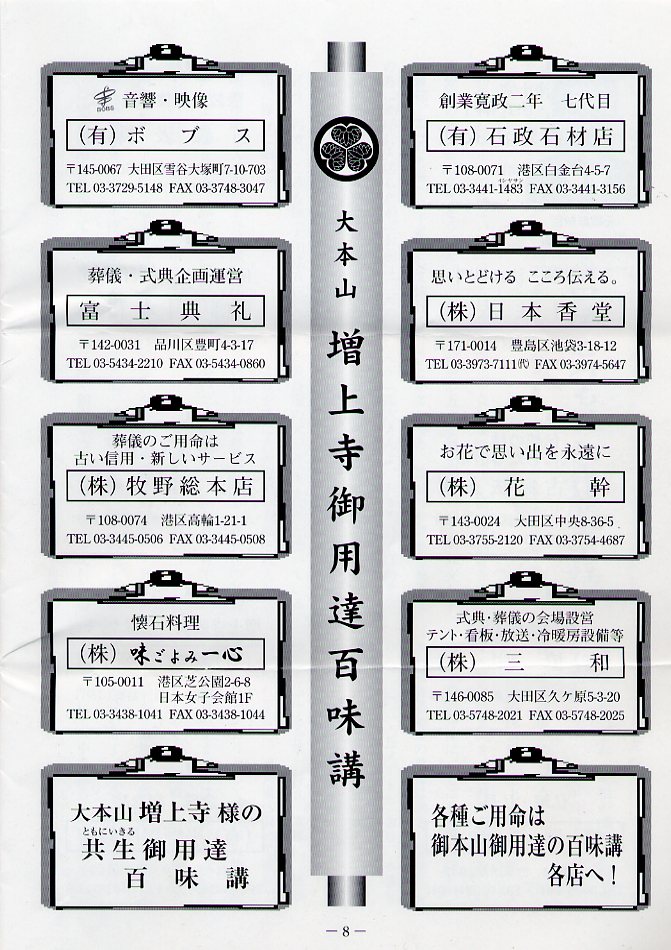 大本山 増上寺御用達百味講
創業寛政二年 七代目
(有)石政石材店
〒108-0071 港区白金台4-5-7
イシヤサン
TEL 03-3441-1483 FAX 03-3441-3156
思いとどける こころ伝える。
(株)日本香堂
〒171-0014 豊島区池袋3-18-12
TEL 03-3973-7111㈹ FAX 03-3974-5647
お花で思い出を永遠に
(株)花幹
〒143-0024 大田区中央8-36-5
TEL 03-3755-2120 FAX 03-3754-4687
式典・葬儀の会場設営
テント・看板・放送・冷暖房設備等
(株)三和
〒146-0085 大田区久ケ原5-3-20
TEL 03-5748-2021 FAX 03-5748-2025
各種ご用命は
御本山御用達の百味講
各店へ！
BOBS 音響・映像
(有)ボブス
〒145-0067 大田区雪谷大塚町7-10-703
TEL 03-3729-5148 FAX 03-3748-3047
葬儀・式典企画運営
富士典礼
〒142-0031 品川区豊町4-3-17
TEL 03-5434-2210 FAX 03-5434-0860
葬儀のご用命は
古い信用・新しいサービス
(株)牧野総本店
〒108-0074 港区高輪1-21-1
TEL 03-3445-0506 FAX 03-3445-0508
懐石料理
(株)味ごよみ一心
〒105-0011 港区芝公園2-6-8
日本女子会館1F
TEL 03-3438-1041 FAX 03-3438-1044
大本山 増上寺 様の
ともにいきる
共生御用達
百味講
― 8 ―